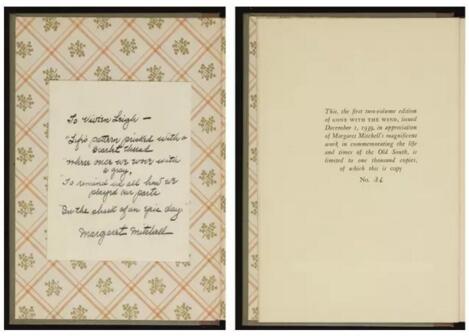 To Vivien Leigh —
"Life's pattern pricked with a
scarlet thread
where once we wove with
a gray,
To remind us all how we
played our parts
In the shock of an epic day."
Margaret Mitchell
This, the first two-volume edition
of GONE WITH THE WIND, issued
December 1, 1939, in appreciation
of Margaret Mitchell's magnificent
work in commemorating the life
and times of the Old South, is
limited to one thousand copies,
of which this is copy
No. 24